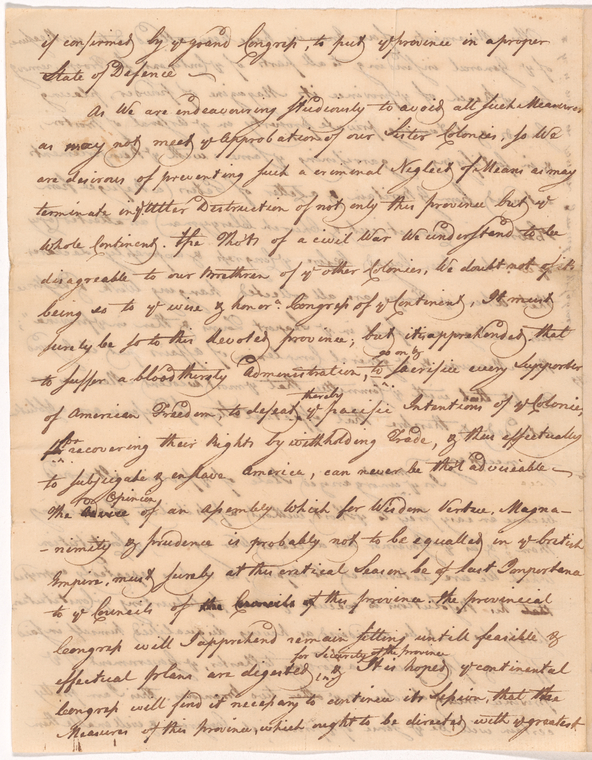 if confirmed by ye grand Congress, to put ye province in a proper
State of Defence —
As We are endeavouring studiously to avoid all such Measures
as may not meet ye Approbation of our Sister Colonies, so We
are desirous of preventing such a criminal Neglect of Means as may
terminate in ye Utter Destruction of not only this province but ye
whole Continent. The Tho'ts of a civil War We understand to be
disagreable to our Brethren of ye other Colonies, We doubt not of it
being so to ye wise & honor. Congress of ye Continent, It must
surely be so to this devoted province; but it is apprehended, that
to suffer a bloodthirsty Administration, to go on & sacrifice every Supporter
of American Freedom to defeat thereby ye pacific Intentions of ye Colonies
for recovering their Rights by withholding Trade, & thus effectually
to subjugate & enslave America, can never be tho't adviseable —
The Opinion of an Assembly which for Wisdom Virtue, Magna-
-nimity & prudence is probably not to be equalled in ye british
Empire, must surely at this critical Season be of vast Importana
to ye Councils of this province. the provincial
Congress will I apprehend remain sitting untill feasible &
effectual plans are digested for Security of the province & It is hoped ye continental
Congress will find it necessary to continue its session, that the
Measures of this province, which ought to be directed with ye greatest